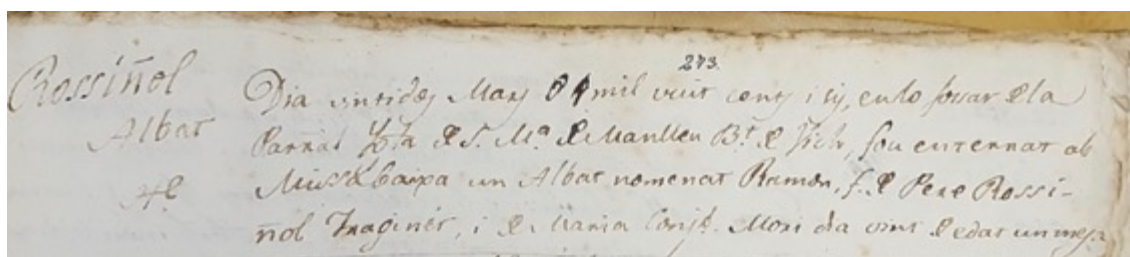 273.
Rossiñol Dia vintidos Mars de mil vuit cens i sis, en lo fossar de la
Albat Parral Ygla de S. Ma. de Manlleu Bt. de Vich, fou enterrat ab
Missa baixa un Albat nomenat Ramon, f. de Pere Rossi-
ñol Traginér, i de Maria Conjs. Mori dia vint de edat un mes.